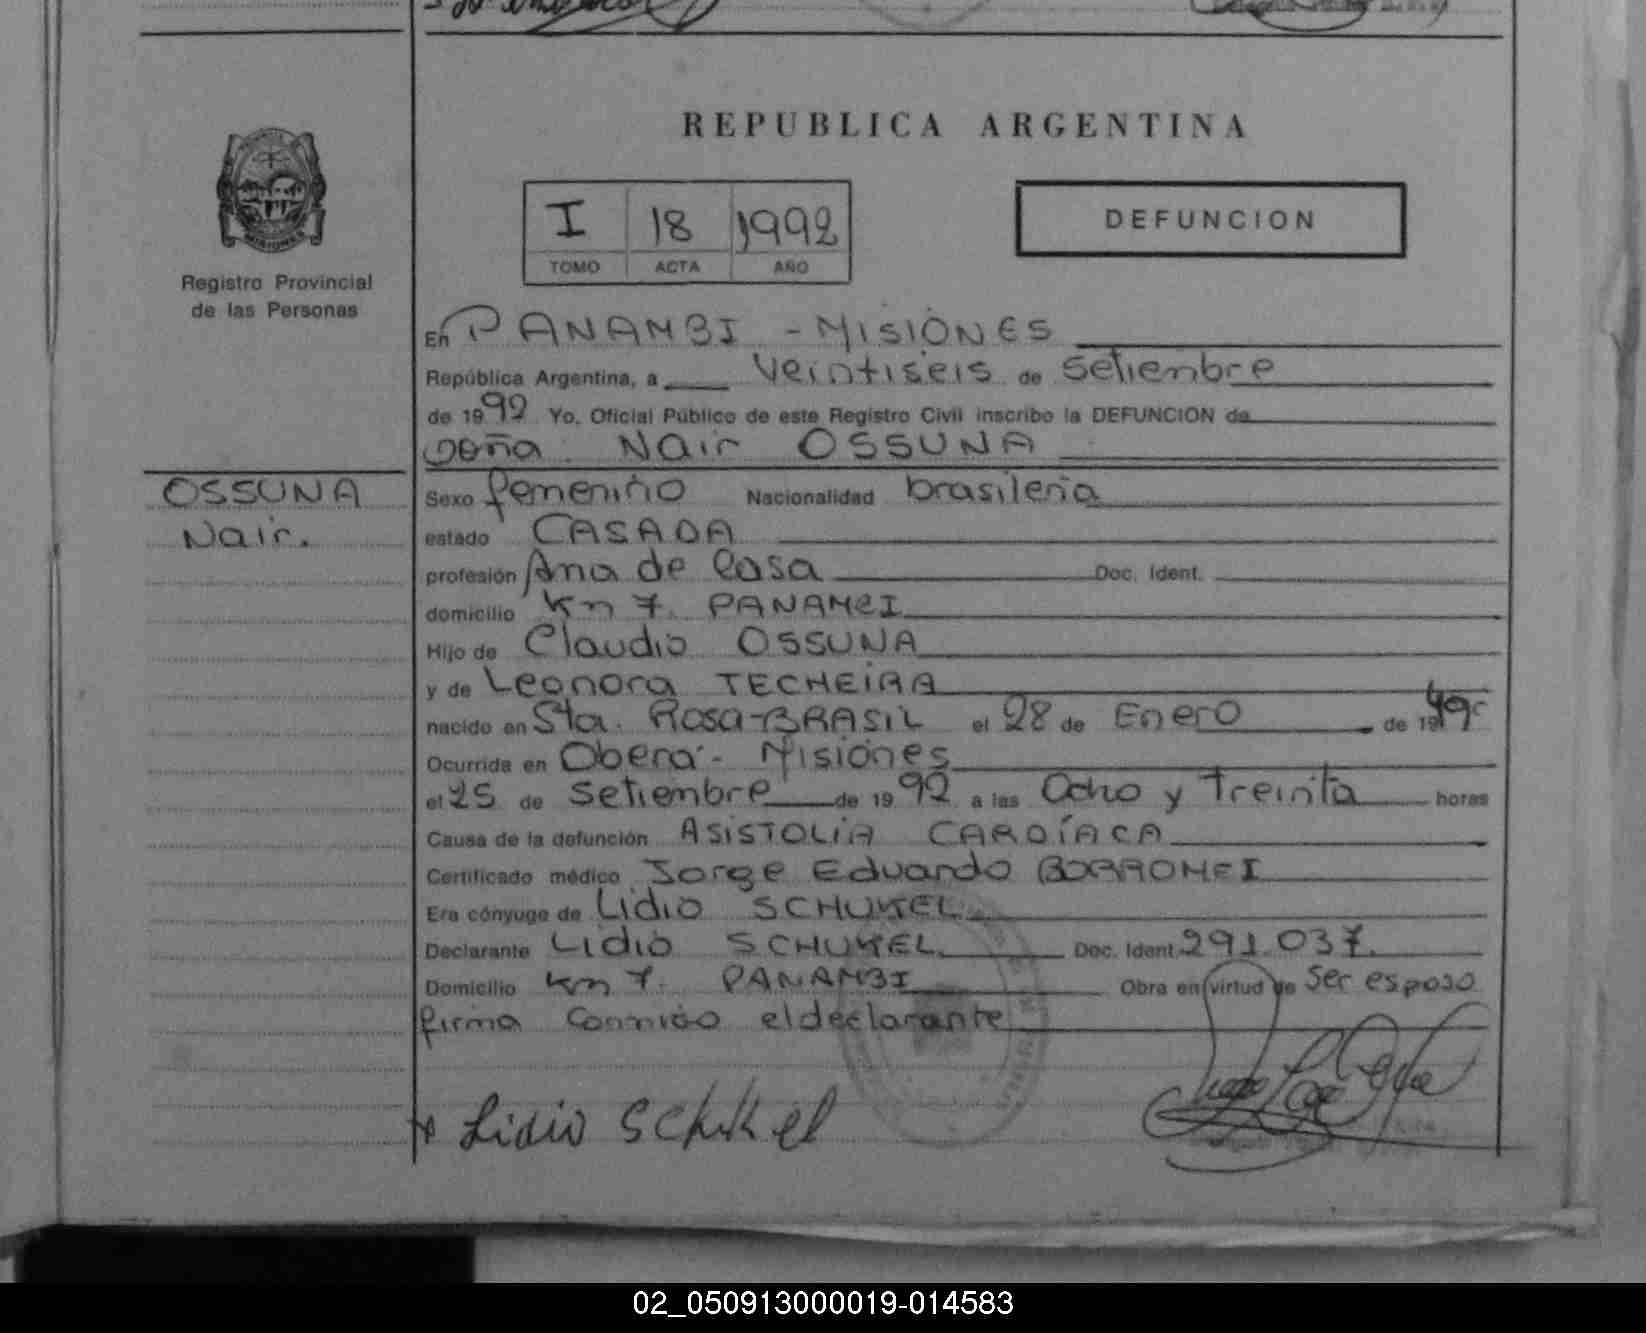 REPUBLICA ARGENTINA
I 18 1992
TOMO ACTA AÑO
DEFUNCION
MISIONES
Registro Provincial
de las Personas
En PANAMBI - MISIONES
República Argentina, a veintiseis de Setiembre
de 1992 Yo, Oficial Público de este Registro Civil inscribo la DEFUNCION de
doña Nair OSSUNA
OSSUNA
Nair.
Sexo femenino Nacionalidad brasileña
estado CASADA
profesión Ama de Casa Doc. Ident.
domicilio Km 7. PANAMBI
Hijo de Claudio OSSUNA
y de Leonora TECHEIRA
nacido en Sta. Rosa-BRASIL el 28 de Enero de 1949
Ocurrida en Oberá - Misiones
el 25 de Setiembre de 1992 a las Ocho y Treinta horas
Causa de la defunción ASISTOLIA CARDÍACA
Certificado médico Jorge Eduardo BORROMEI
Era cónyuge de Lidio SCHUKEL
Declarante Lidio SCHUKEL Doc. Ident. 291.037.
Domicilio Km 7. PANAMBI Obra en virtud de Ser esposo
firma conmigo el declarante
Lidio Schukel
02_050913000019-014583